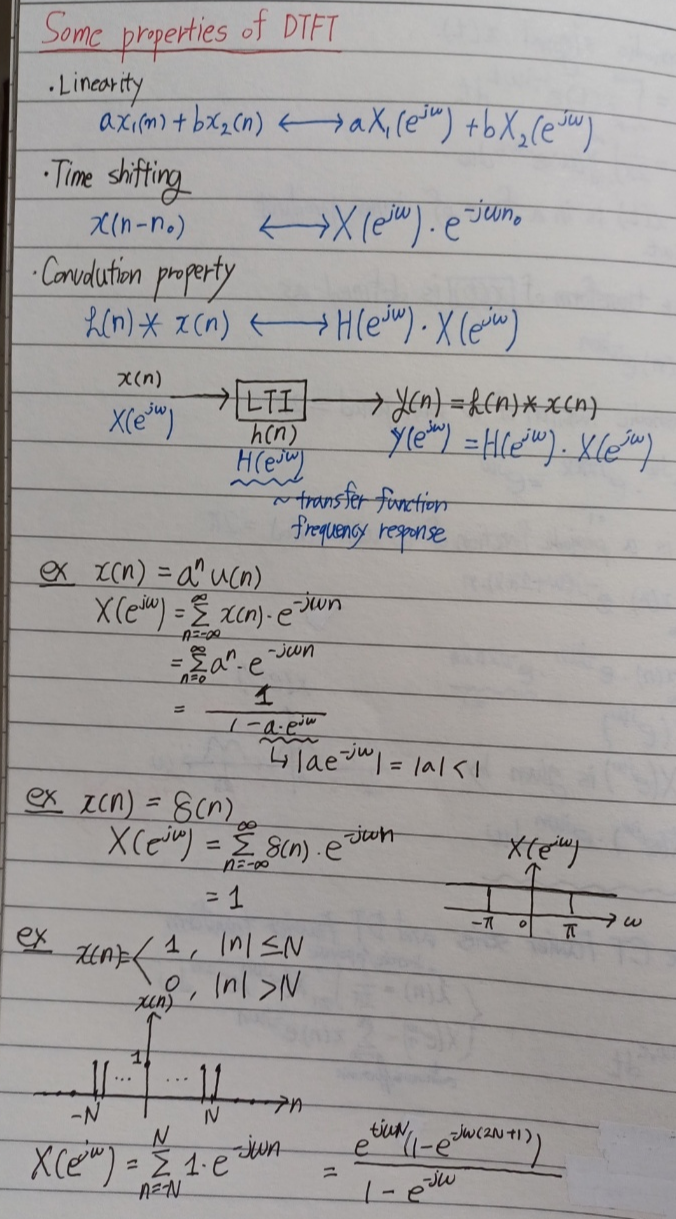 Some properties of DTFT
·Linearity
ax₁(n) + bx₂(n) ⟷ aX₁(e^{jω}) + bX₂(e^{jω})
·Time shifting
x(n-n₀) ⟷ X(e^{jω}) · e^{-jωn₀}
·Convolution property
h(n) * x(n) ⟷ H(e^{jω}) · X(e^{jω})
x(n) → LTI → y(n) = h(n) * x(n)
X(e^{jω}) h(n) Y(e^{jω}) = H(e^{jω}) · X(e^{jω})
H(e^{jω})
~ transfer function
frequency response
ex x(n) = aⁿ u(n)
X(e^{jω}) = Σ_{n=-∞}^{∞} x(n) · e^{-jωn}
= Σ_{n=0}^{∞} aⁿ · e^{-jωn}
= 1 / (1 - a · e^{jω})
↳ |ae^{-jω}| = |a| < 1
ex x(n) = δ(n)
X(e^{jω}) = Σ_{n=-∞}^{∞} δ(n) · e^{-jωn}
= 1
X(e^{jω})
-π 0 π ω
ex x(n) = < 1, |n| ≤ N
0, |n| > N
x(n)
1
... ...
-N N n
X(e^{jω}) = Σ_{n=-N}^{N} 1 · e^{-jωn} = e^{+jωN}(1 - e^{-jω(2N+1)}) / (1 - e^{-jω})